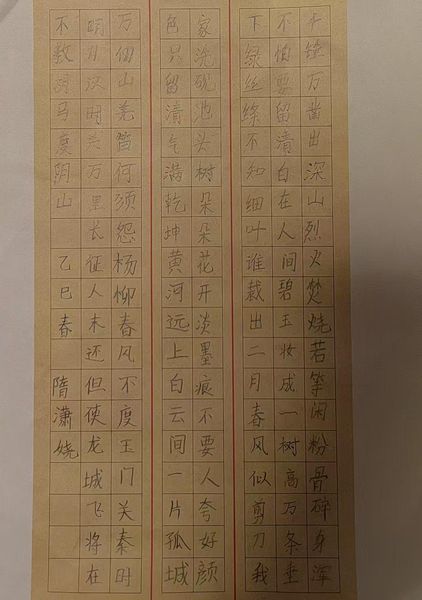 千锤万凿出深山烈火焚烧若等闲粉骨碎身浑
不怕要留清白在人间碧玉妆成一树高万条垂
下绿丝绦不知细叶谁裁出二月春风似剪刀我
家洗砚池头树朵朵花开淡墨痕不要人夸好颜
色只留清气满乾坤黄河远上白云间一片孤城
万仞山羌笛何须怨杨柳春风不度玉门关秦时
明月汉时关万里长征人未还但使龙城飞将在
不教胡马度阴山 乙巳春 隋潇娆